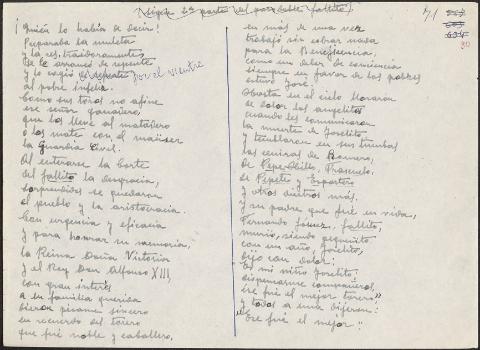 (Sigue 2ª parte del pasodoble fallito)
¡Quién lo había de decir!
Preparaba la muleta
y la
se le arrancó de repente
y lo cogió por el vientre
al pobre infeliz.
Como sus toros no afine
ese señor ganadero,
que los lleve al matadero
o los mate con el maüser
la Guardia Civil.
Al enterarse la Corte
del fallito la desgracia,
sorprendidos se quedaron
el pueblo y la aristocracia.
Con urgencia y eficacia
y para honrar su memoria,
la Reina Doña Victoria
y el Rey Don Alfonso XIII,
con gran interés
a su familia querida
dieron pésame sincero
en recuerdo del torero
que fué noble y caballero,
en más de una vez
trabajó sin cobrar nada
para la Beneficencia,
como un deber de conciencia
siempre en favor de los pobres
estuvo José.
Hasta en el cielo lloraron
de dolor los angelitos
cuando les comunicaron
la muerte de Joselito
y temblaron en sus tumbas
las cenizas de Romero,
de Pepe-Hillo, Frascuelo,
de Pepete y Espartero
y otros diestros más.
Y su padre que fué en vida,
Fernando Gómez, fallito,
murió, siendo pequeñito
con un año, Joselito,
dijo con dolor:
Es mi niño Joselito,
dispensarme compañeros,
ese fué el mejor torero"
y todos a una dijeron:
"Ese fué el mejor".